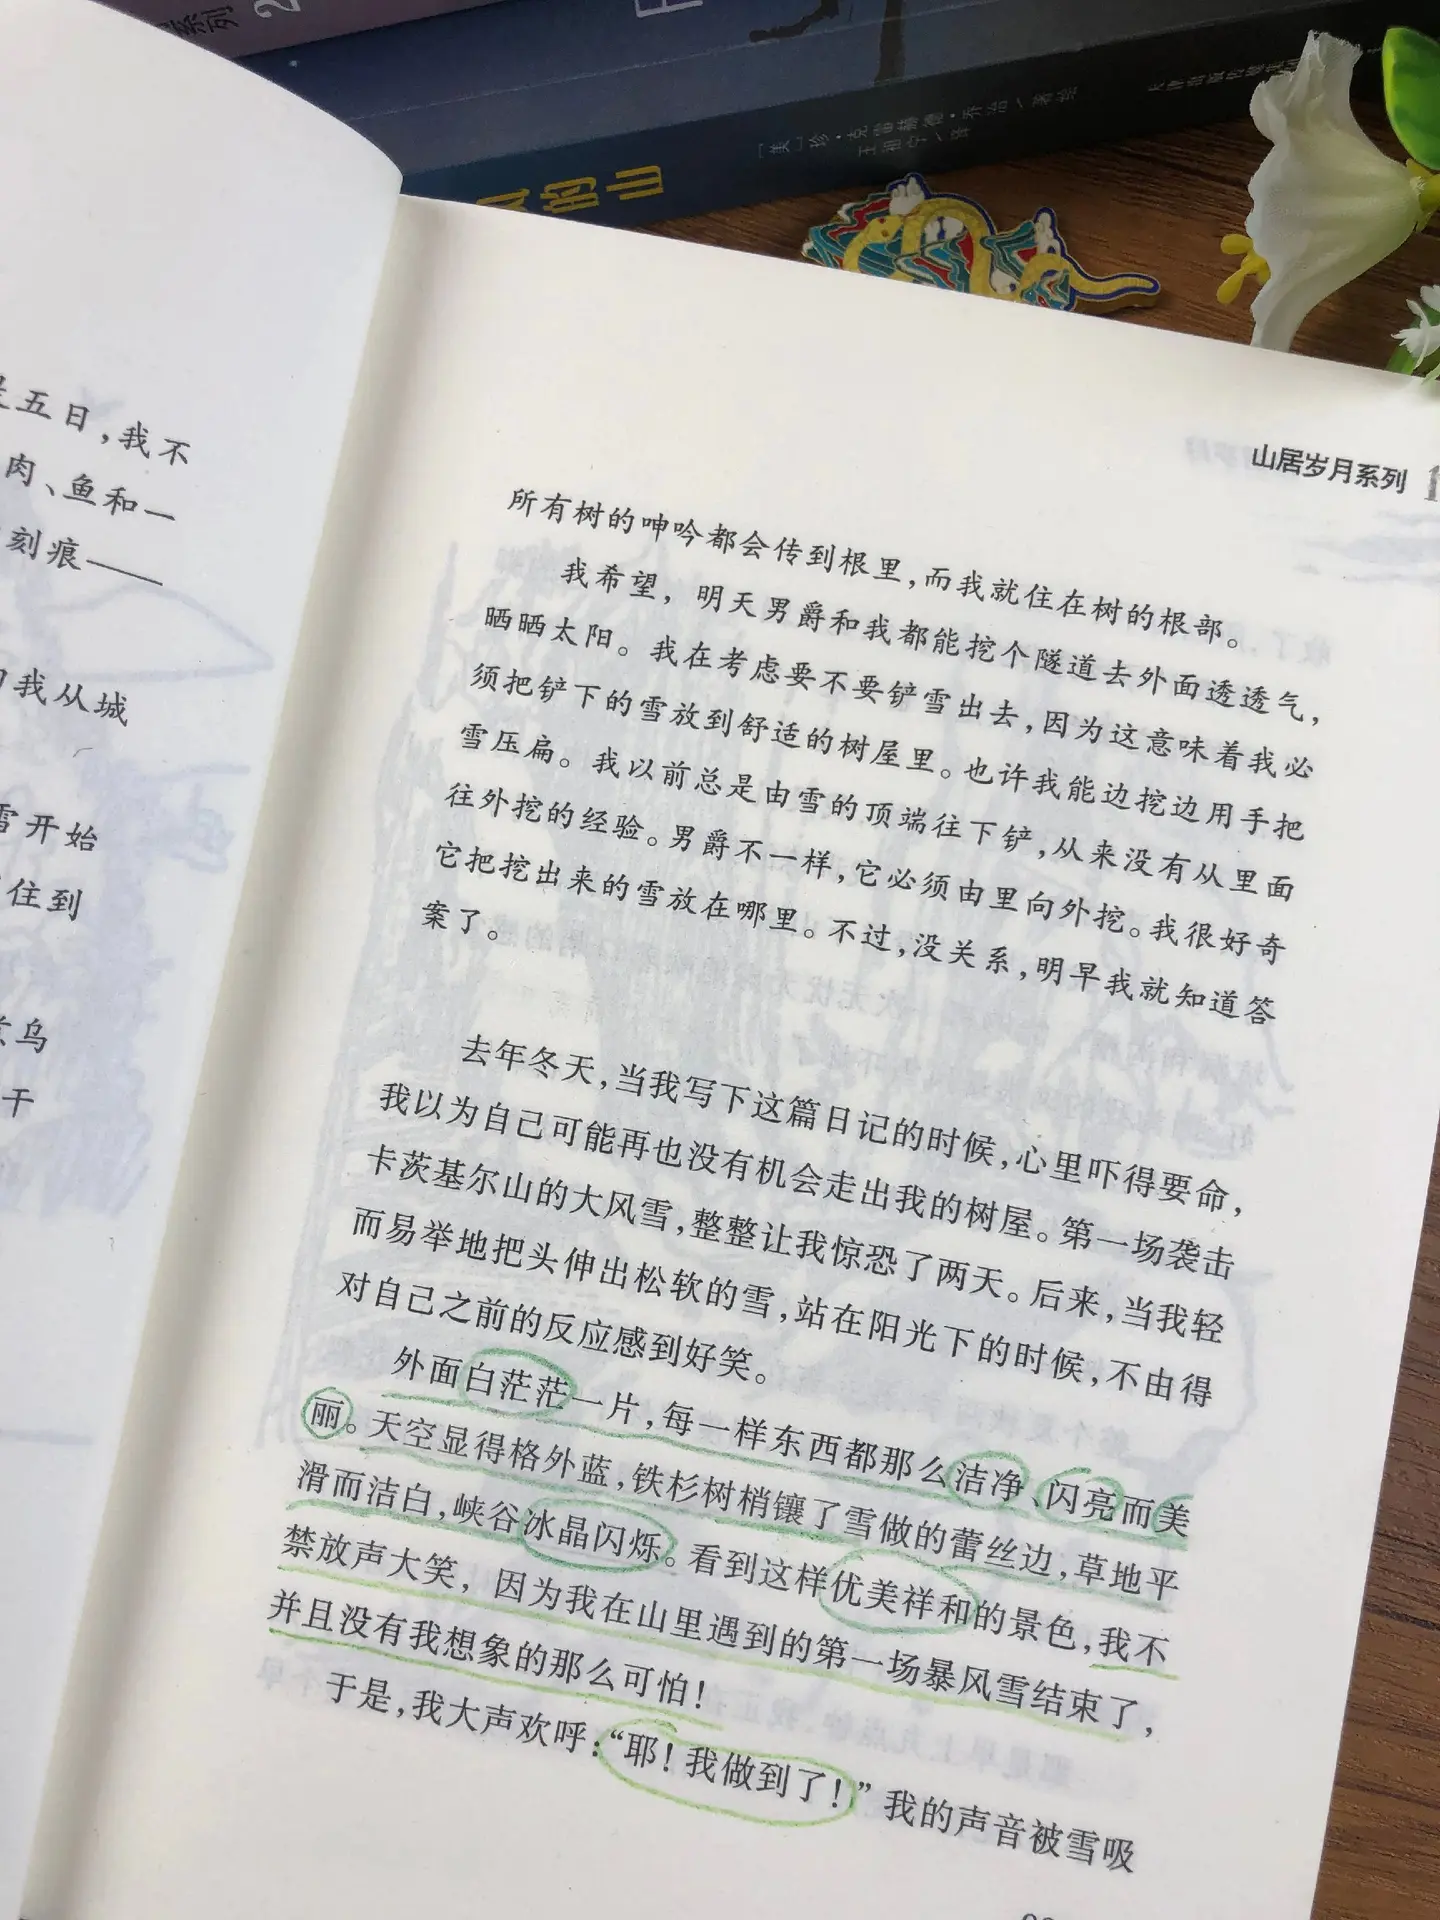 系列
2
的山
[美]珍·克雷赫德·乔治/著绘
五日,我不
肉、鱼和一
刻痕——
我从城
开始
住到
乌
干
山居岁月系列
所有树的呻吟都会传到根里,而我就住在树的根部。
我希望,明天男爵和我都能挖个隧道去外面透透气,
晒晒太阳。我在考虑要不要铲雪出去,因为这意味着我必
须把铲下的雪放到舒适的树屋里。也许我能边挖边用手把
雪压扁。我以前总是由雪的顶端往下铲,从来没有从里面
往外挖的经验。男爵不一样,它必须由里向外挖。我很好奇
它把挖出来的雪放在哪里。不过,没关系,明早我就知道答
案了。
去年冬天,当我写下这篇日记的时候,心里吓得要命,
我以为自己可能再也没有机会走出我的树屋。第一场袭击
卡茨基尔山的大风雪,整整让我惊恐了两天。后来,当我轻
而易举地把头伸出松软的雪,站在阳光下的时候,不由得
对自己之前的反应感到好笑。
外面白茫茫一片,每一样东西都那么洁净、闪亮而美
丽。天空显得格外蓝,铁杉树梢镶了雪做的蕾丝边,草地平
滑而洁白,峡谷冰晶闪烁。看到这样优美祥和的景色,我不
禁放声大笑,因为我在山里遇到的第一场暴风雪结束了,
并且没有我想象的那么可怕!
于是,我大声欢呼:“耶!我做到了!”我的声音被雪吸